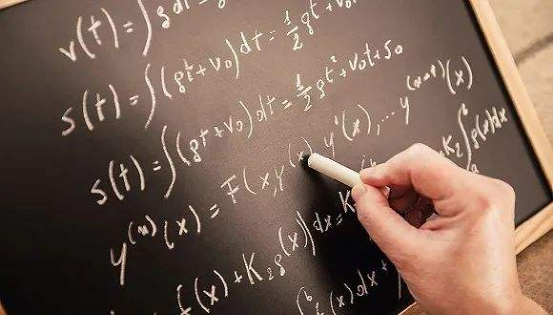 v(t) = ∫ g dt =
s(t) = ∫ (gt + v₀) dt = ½ gt² + v₀
s(t) = ∫ (gt + v₀) dt = ½ gt² + v₀t + s₀
y⁽ⁿ⁾(x) = F(x, y(x), y'(x), ... y⁽ⁿ⁻¹⁾(x)
f(x) + K₂g(x)) dx = K K₂ ∫ g(x) dx
∫ᵇ f(x) dx +